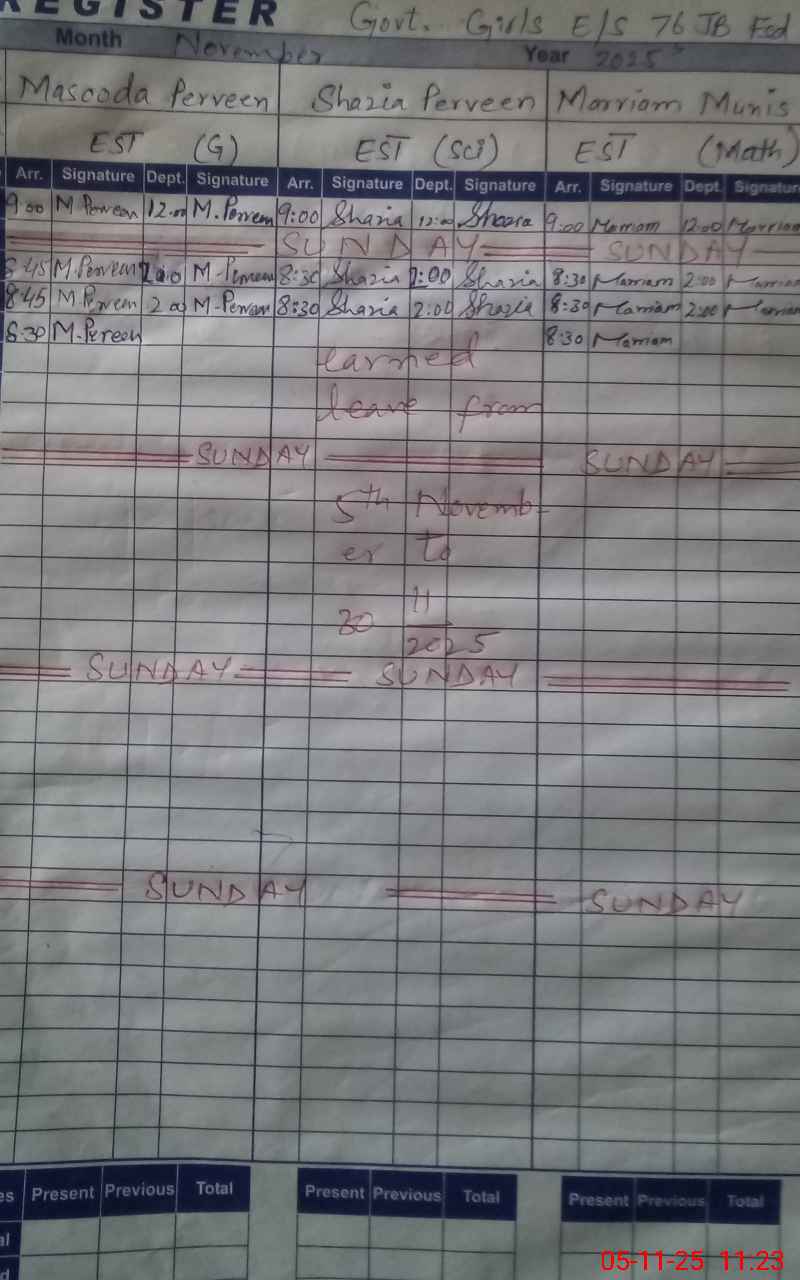 REGISTER Govt. Girls E/S 76 JB Fsd
Month November Year 2025
Mascoda Perveen Shazia Perveen Marriam Munis
EST (G) EST (Sci) EST (Math)
Arr. Signature Dept. Signature Arr. Signature Dept. Signature Arr. Signature Dept. Signature
9:00 M Perveen 12:00 M. Perveen 9:00 Shazia 12:00 Shazia 9:00 Marriam 12:00 Marriam
SUNDAY SUNDAY
8:45 M. Perveen 2:00 M-Perveen 8:30 Shazia 2:00 Shazia 8:30 Marriam 2:00 Marriam
8:45 M. Perveen 2:00 M-Perveen 8:30 Shazia 2:00 Shazia 8:30 Marriam 2:00 Marriam
8:30 M. Pereen 8:30 Marriam
earned
leave from
SUNDAY SUNDAY
5th Novemb-
er to
30 11
2025
SUNDAY SUNDAY
SUNDAY SUNDAY
es Present Previous Total Present Previous Total Present Previous Total
al
d
05-11-25 11:23